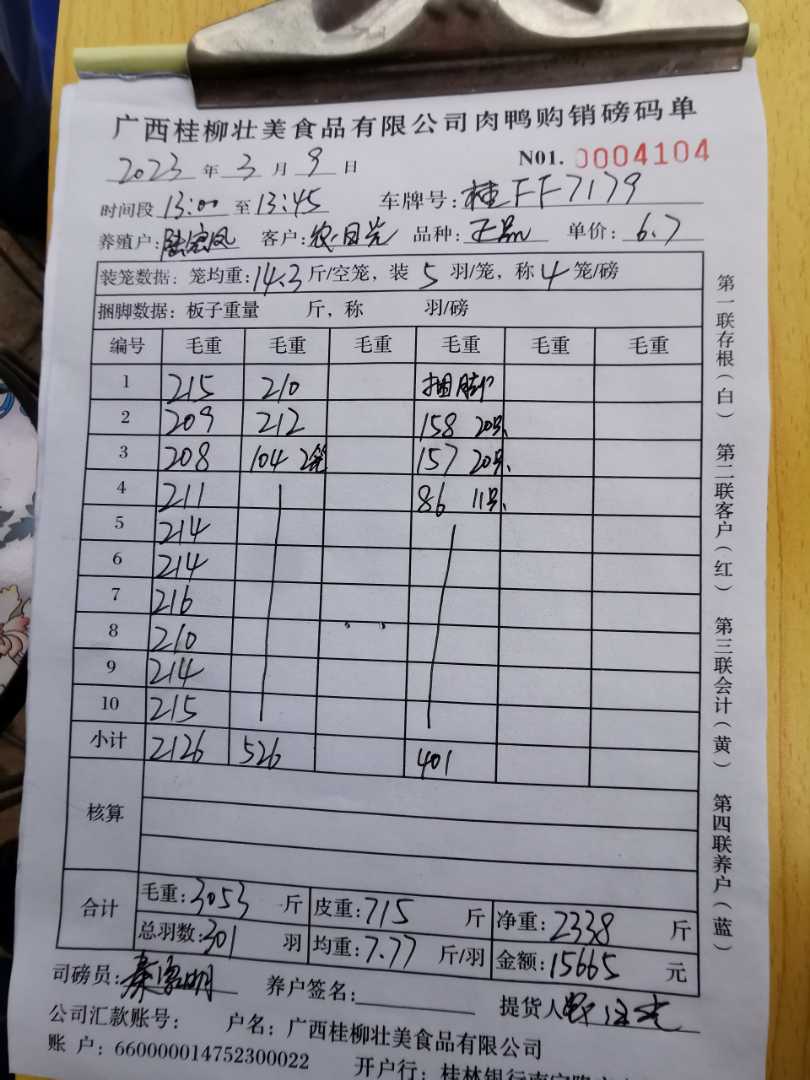 广西桂柳壮美食品有限公司肉鸭购销磅码单
2023 年 3 月 9 日 N01. 0004104
时间段 13:00 至 13:45 车牌号: 桂FF7179
养殖户: 客户: 农日光 品种: 单价: 6.7
装笼数据: 笼均重: 14.3 斤/空笼, 装 5 羽/笼, 称 4 笼/磅
捆脚数据: 板子重量 斤, 称 羽/磅
编号 毛重 毛重 毛重 毛重 毛重 毛重
1 215 210 捆脚
2 209 212 158 20只
3 208 104 2笼 157 20只
4 211 86 11只
5 214
6 214
7 216
8 210
9 214
10 215
小计 2126 526 401
核算
合计 毛重: 3053 斤 皮重: 715 斤 净重: 2338 斤
总羽数: 301 羽 均重: 7.77 斤/羽 金额: 15665 元
司磅员: 秦家明 养户签名: 提货人
公司汇款账号: 户名: 广西桂柳壮美食品有限公司
账户: 660000014752300022 开户行: 桂林银行南宁
第一联存根(白) 第二联客户(红) 第三联会计(黄) 第四联养户(蓝)